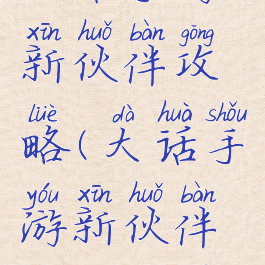 xīn huǒ bàn gōng
新伙伴攻
lüè dà huà shǒu
略(大话手
yóu xīn huǒ bàn
游新伙伴